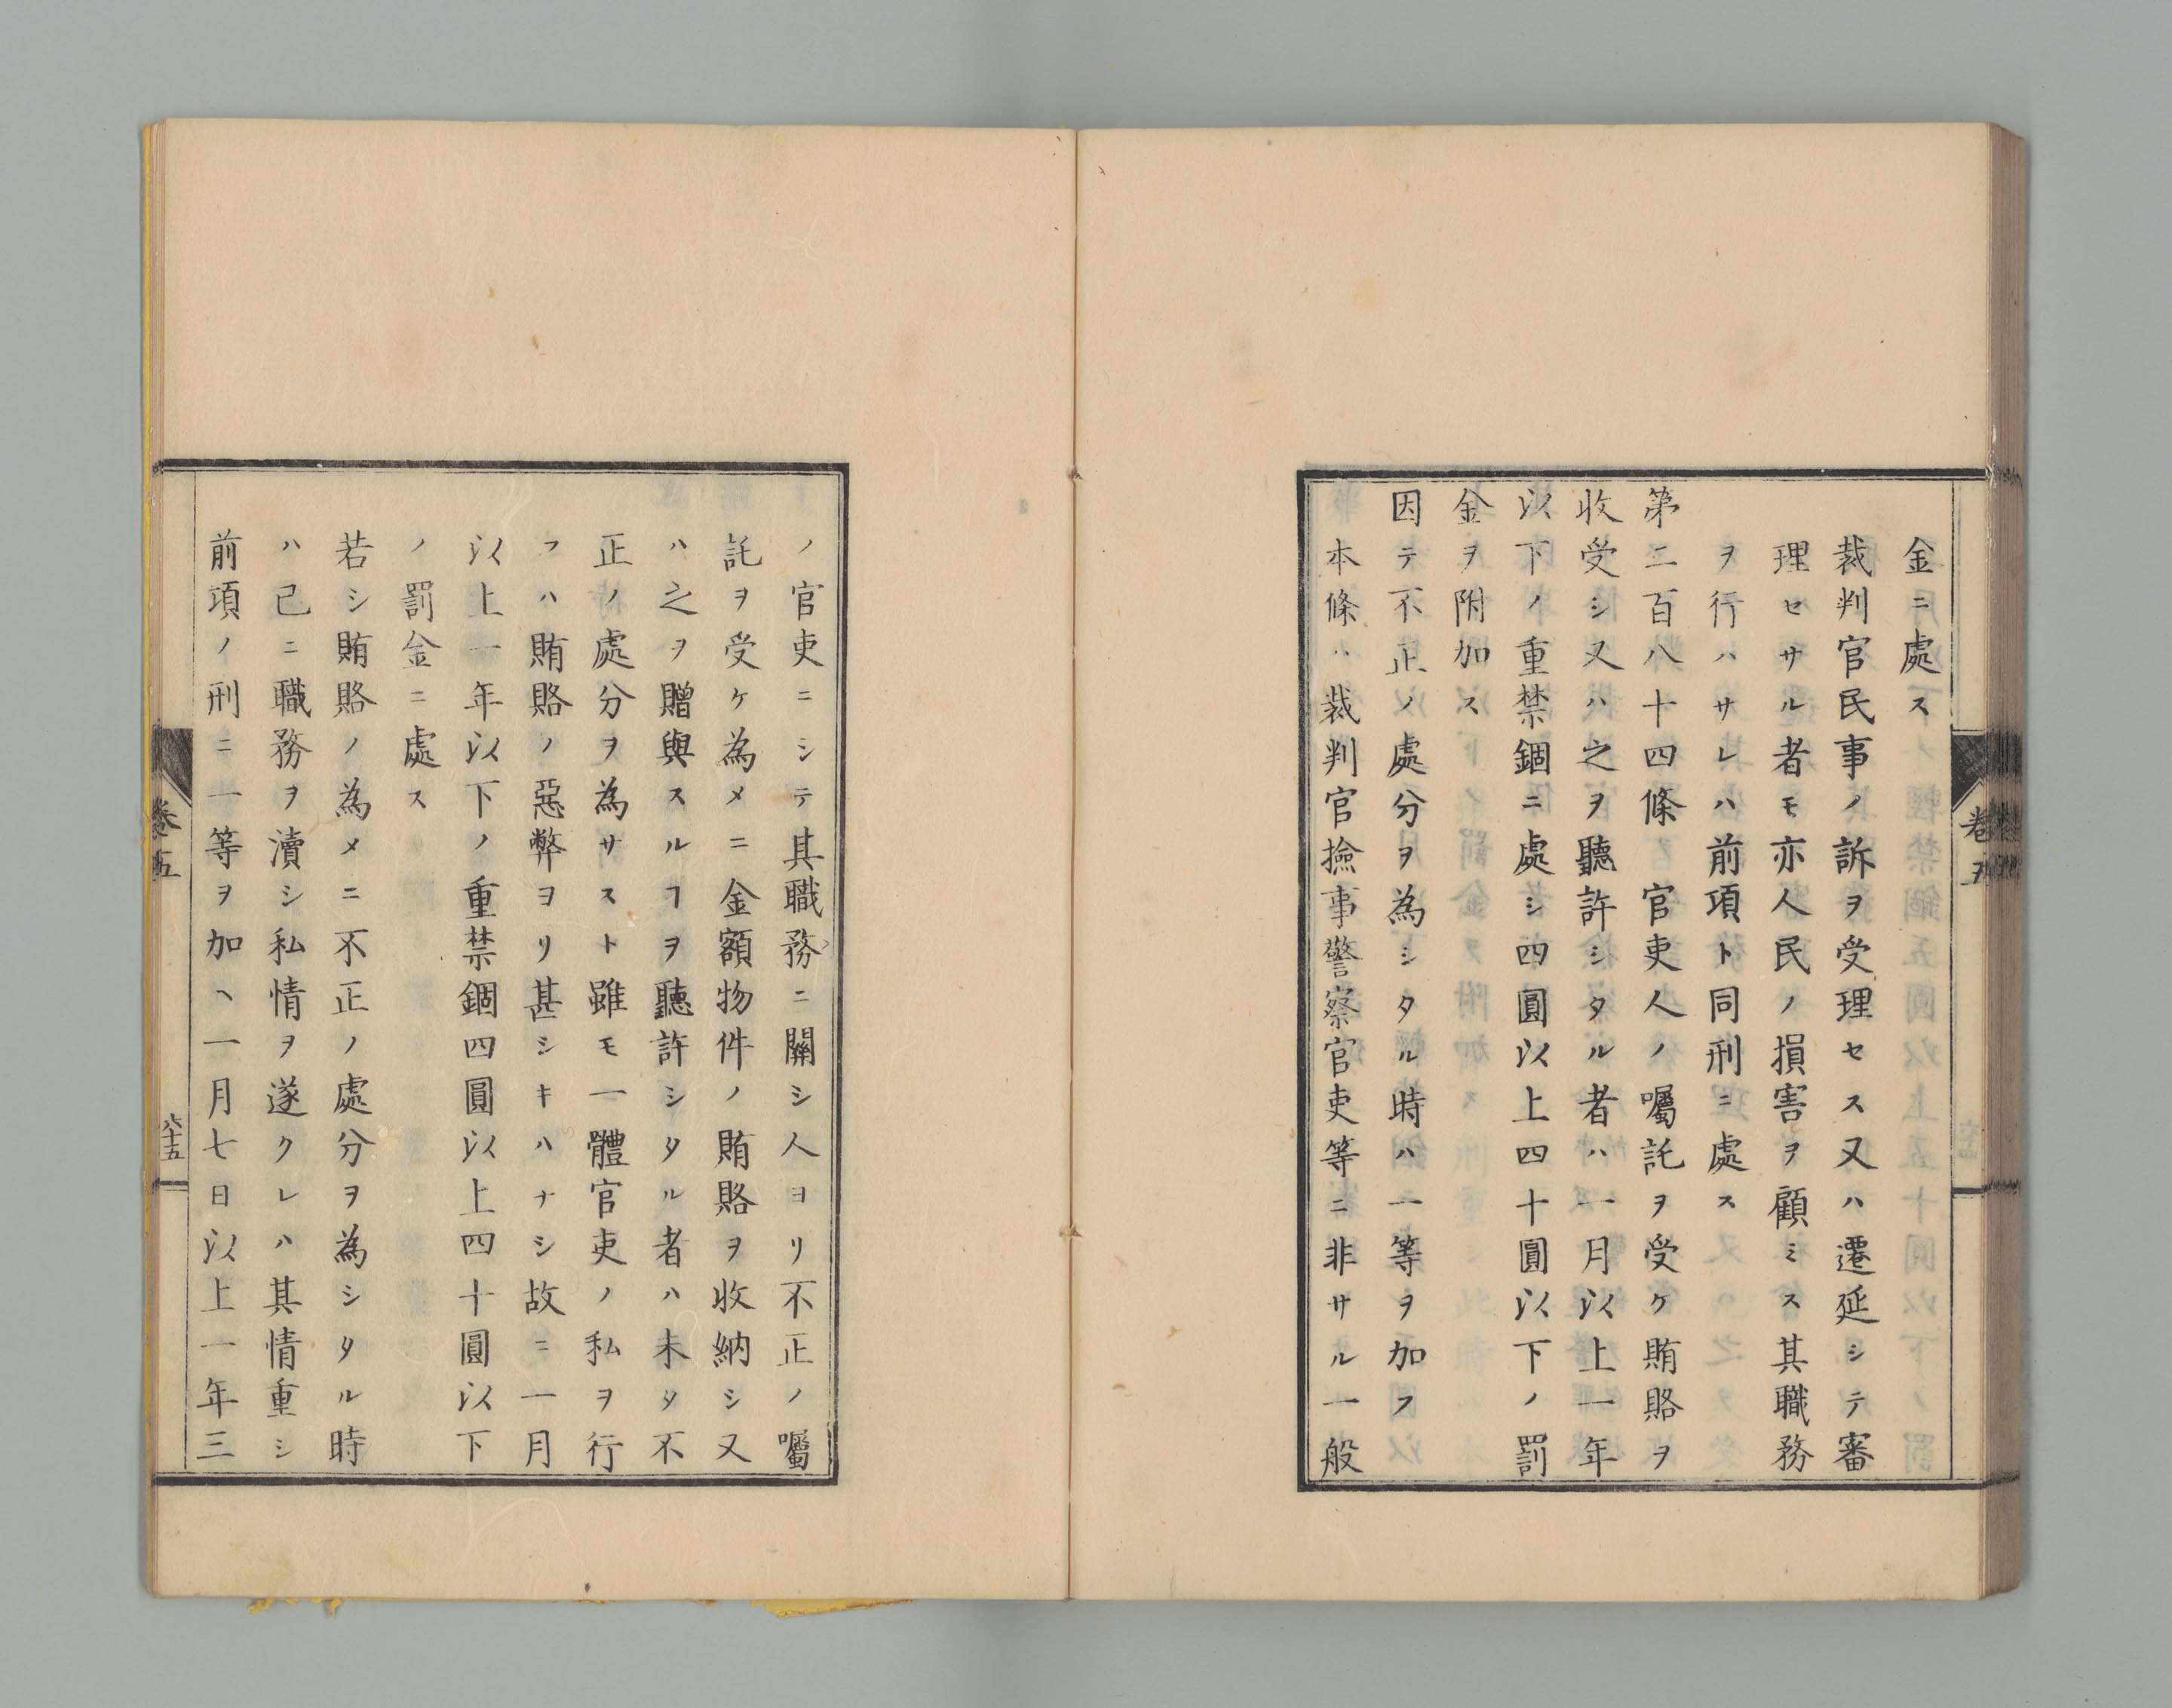 金ニ處ス
裁判官民事ノ訴ヲ受理セス又ハ遷延シテ審
理セサル者モ亦人民ノ損害ヲ顧ミス其職務
ヲ行ハサレハ前項ト同刑ニ處ス
第二百八十四條 官吏人ノ囑託ヲ受ケ賄賂ヲ
收受シ又ハ之ヲ聽許シタル者ハ一月以上一年
以下ノ重禁錮ニ處シ四圓以上四十圓以下ノ罰
金ヲ附加ス
因テ不正ノ處分ヲ為シタル時ハ一等ヲ加フ
本條ハ裁判官撿事警察官吏等ニ非サル一般
卷五
ノ官吏ニシテ其職務ニ關シ人ヨリ不正ノ囑
託ヲ受ケ為メニ金額物件ノ賄賂ヲ收納シ又
ハ之ヲ贈與スルヿヲ聽許シタル者ハ未タ不
正ノ處分ヲ為サスト雖モ一體官吏ノ私ヲ行
フハ賄賂ノ惡弊ヨリ甚シキハナシ故ニ一月
以上一年以下ノ重禁錮四圓以上四十圓以下
ノ罰金ニ處ス
若シ賄賂ノ為メニ不正ノ處分ヲ為シタル時
ハ已ニ職務ヲ瀆シ私情ヲ遂クレハ其情重シ
前項ノ刑ニ一等ヲ加ヘ一月七日以上一年三
卷五
六十五